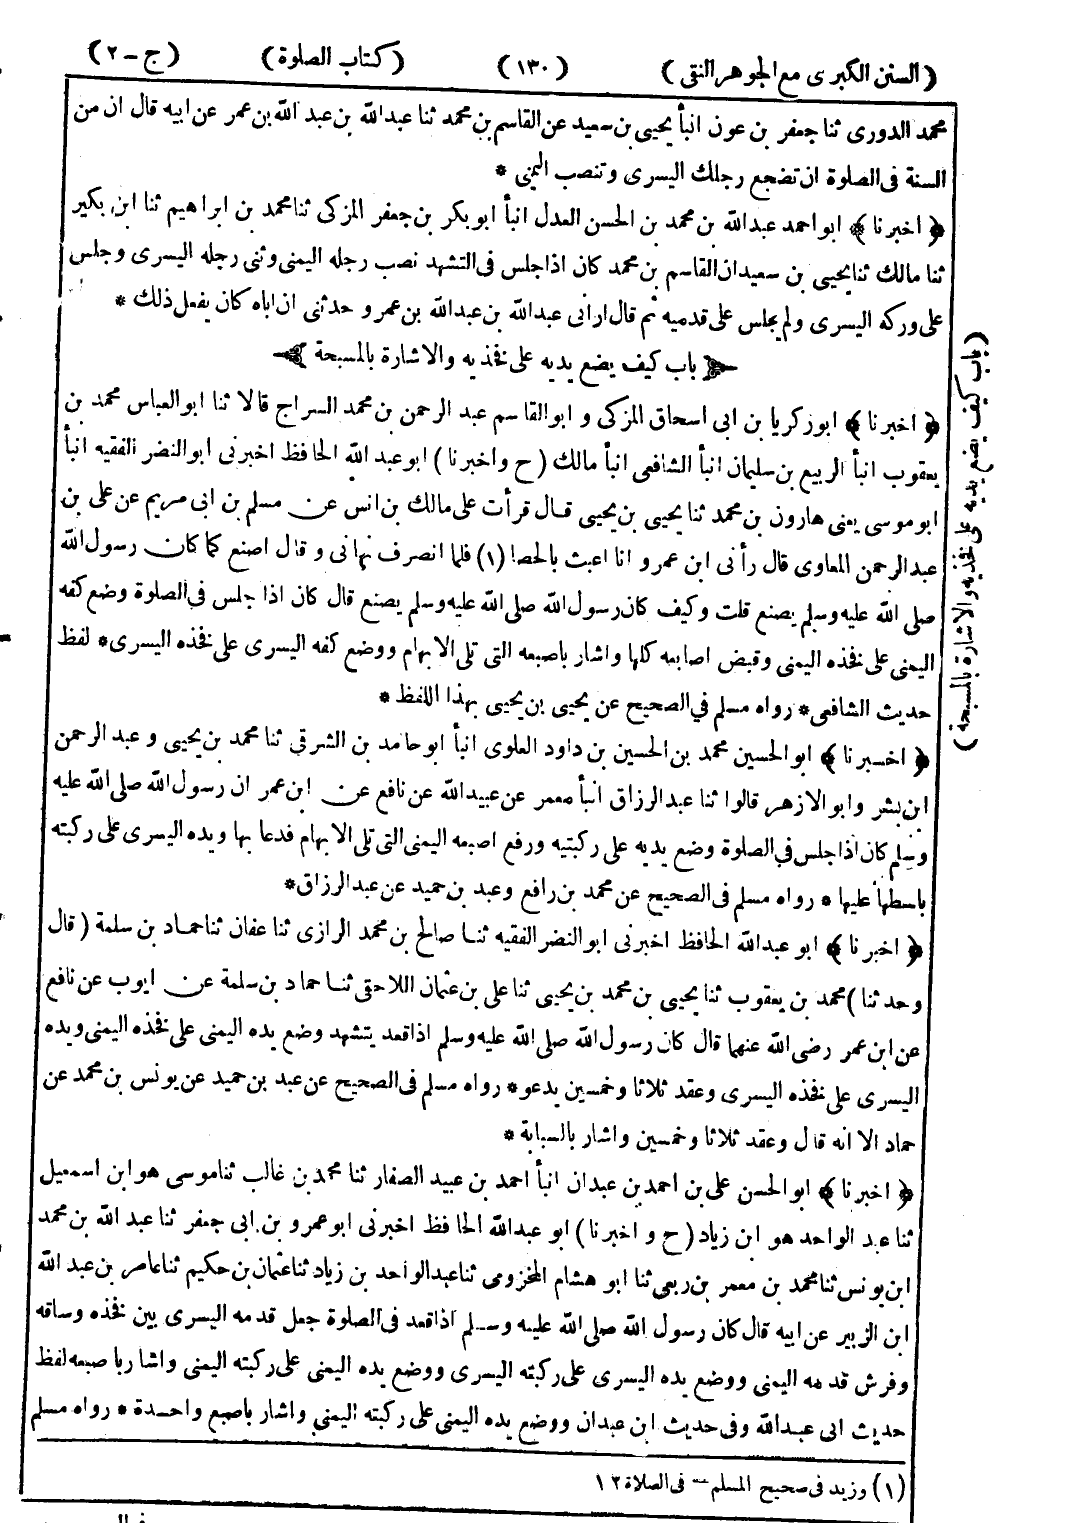 (السنن الكبرى مع الجوهر النقى) (١٣٠) (كتاب الصلوة) (ج - ٢)
محمد الدورى ثنا جعفر بن عون انبأ يحيى بن سعيد عن القاسم بن محمد ثنا عبدالله بن عبد الله بن عمر عن ابيه قال ان من
السنة فى الصلوة ان تضجع رجلك اليسرى وتنصب اليمنى *
﴿ اخبرنا ﴾ ابو احمد عبدالله بن محمد بن الحسن العدل انبأ ابو بكر بن جعفر المزكى ثنا محمد بن ابراهيم ثنا ابن بكير
ثنا مالك ثنا يحيى بن سعيد ان القاسم بن محمد كان اذا جلس فى التشهد نصب رجله اليمنى وثنى رجله اليسرى وجلس
على وركه اليسرى ولم يجلس على قدميه ثم قال ارانى عبدالله بن عبدالله بن عمر و حدثنى ان اباه كان يفعل ذلك *
باب كيف يضع يديه على فخذيه والاشارة بالمسبحة
﴿ اخبرنا ﴾ ابو زكريا بن ابى اسحاق المزكى و ابو القاسم عبد الرحمن بن محمد السراج قالا ثنا ابو العباس محمد بن
يعقوب انبأ الربيع بن سليمان انبأ الشافعى انبأ مالك (ح واخبرنا) ابو عبد الله الحافظ اخبرنى ابو النضر الفقيه انبأ
ابو موسى يعنى هارون بن محمد ثنا يحيى بن يحيى قال قرأت على مالك بن انس عن مسلم بن ابى مريم عن على بن
عبد الرحمن المعاوى قال رأنى ابن عمر و انا اعبث بالحصا (١) فلما انصرف نهانى و قال اصنع كما كان رسول الله
صلى الله عليه وسلم يصنع قلت وكيف كان رسول الله صلى الله عليه وسلم يصنع قال كان اذا جلس فى الصلوة وضع كفه
اليمنى على فخذه اليمنى وقبض اصابعه كلها واشار باصبعه التى تلى الابهام ووضع كفه اليسرى على فخذه اليسرى * لفظ
حديث الشافعى * رواه مسلم فى الصحيح عن يحيى بن يحيى بهذا اللفظ *
﴿ اخبرنا ﴾ ابو الحسين محمد بن الحسين بن داود العلوى انبأ ابو حامد بن الشرقى ثنا محمد بن يحيى و عبد الرحمن
ابن بشر وابو الازهر قالوا ثنا عبد الرزاق انبأ معمر عن عبيد الله عن نافع عن ابن عمر ان رسول الله صلى الله عليه
وسلم كان اذا جلس فى الصلوة وضع يديه على ركبتيه ورفع اصبعه اليمنى التى تلى الابهام فدعا بها ويده اليسرى على ركبته
باسطها عليها * رواه مسلم فى الصحيح عن محمد بن رافع وعبد بن حميد عن عبد الرزاق *
﴿ اخبرنا ﴾ ابو عبدالله الحافظ اخبرنى ابو النضر الفقيه ثنا صالح بن محمد الرازى ثنا عفان ثنا حماد بن سلمة (قال
وحدثنا) محمد بن يعقوب ثنا يحيى بن محمد بن يحيى ثنا على بن عثمان اللاحقى ثنا حماد بن سلمة عن ايوب عن نافع
عن ابن عمر رضى الله عنهما قال كان رسول الله صلى الله عليه وسلم اذا قعد يتشهد وضع يده اليمنى على فخذه اليمنى ويده
اليسرى على فخذه اليسرى وعقد ثلاثا وخمسين يدعو * رواه مسلم فى الصحيح عن عبد بن حميد عن يونس بن محمد عن
حماد الا انه قال وعقد ثلاثا وخمسين واشار بالسبابة *
﴿ اخبرنا ﴾ ابو الحسن على بن احمد بن عبدان انبأ احمد بن عبيد الصفار ثنا محمد بن غالب ثنا موسى هو ابن اسمعيل
ثنا عبد الواحد هو ابن زياد (ح و اخبرنا) ابو عبدالله الحافظ اخبرنى ابو عمرو بن ابى جعفر ثنا عبد الله بن محمد
ابن يونس ثنا محمد بن معمر بن ربعى ثنا ابو هشام المخزومى ثنا عبد الواحد بن زياد ثنا عثمان بن حكيم ثنا عامر بن عبد الله
ابن الزبير عن ابيه قال كان رسول الله صلى الله عليه وسلم اذا قعد فى الصلوة جعل قدمه اليسرى بين فخذه وساقه
وفرش قدمه اليمنى ووضع يده اليسرى على ركبته اليسرى ووضع يده اليمنى على ركبته اليمنى واشار باصبعه لفظ
حديث ابى عبدالله وفى حديث ابن عبدان ووضع يده اليمنى على ركبته اليمنى واشار باصبع واحدة * رواه مسلم
(١) وزيد فى صحيح المسلم - فى الصلاة ١٢
(باب كيف يضع يديه على فخذيه والاشارة بالمسبحة)